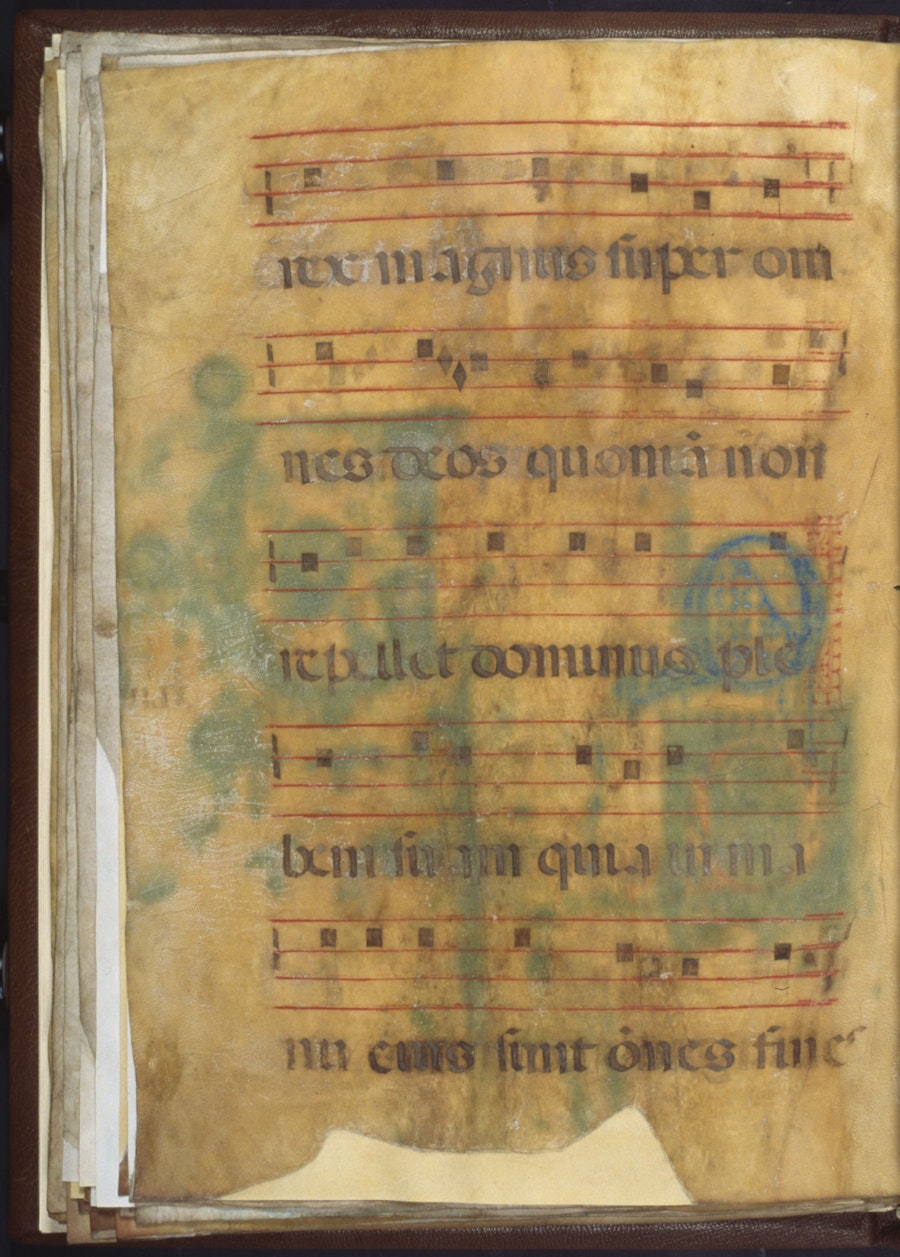 rex magnus super om
nes deos quoniā non
repellet dominus ple
bem suam quia in ma
nu eius sunt ōnes fines